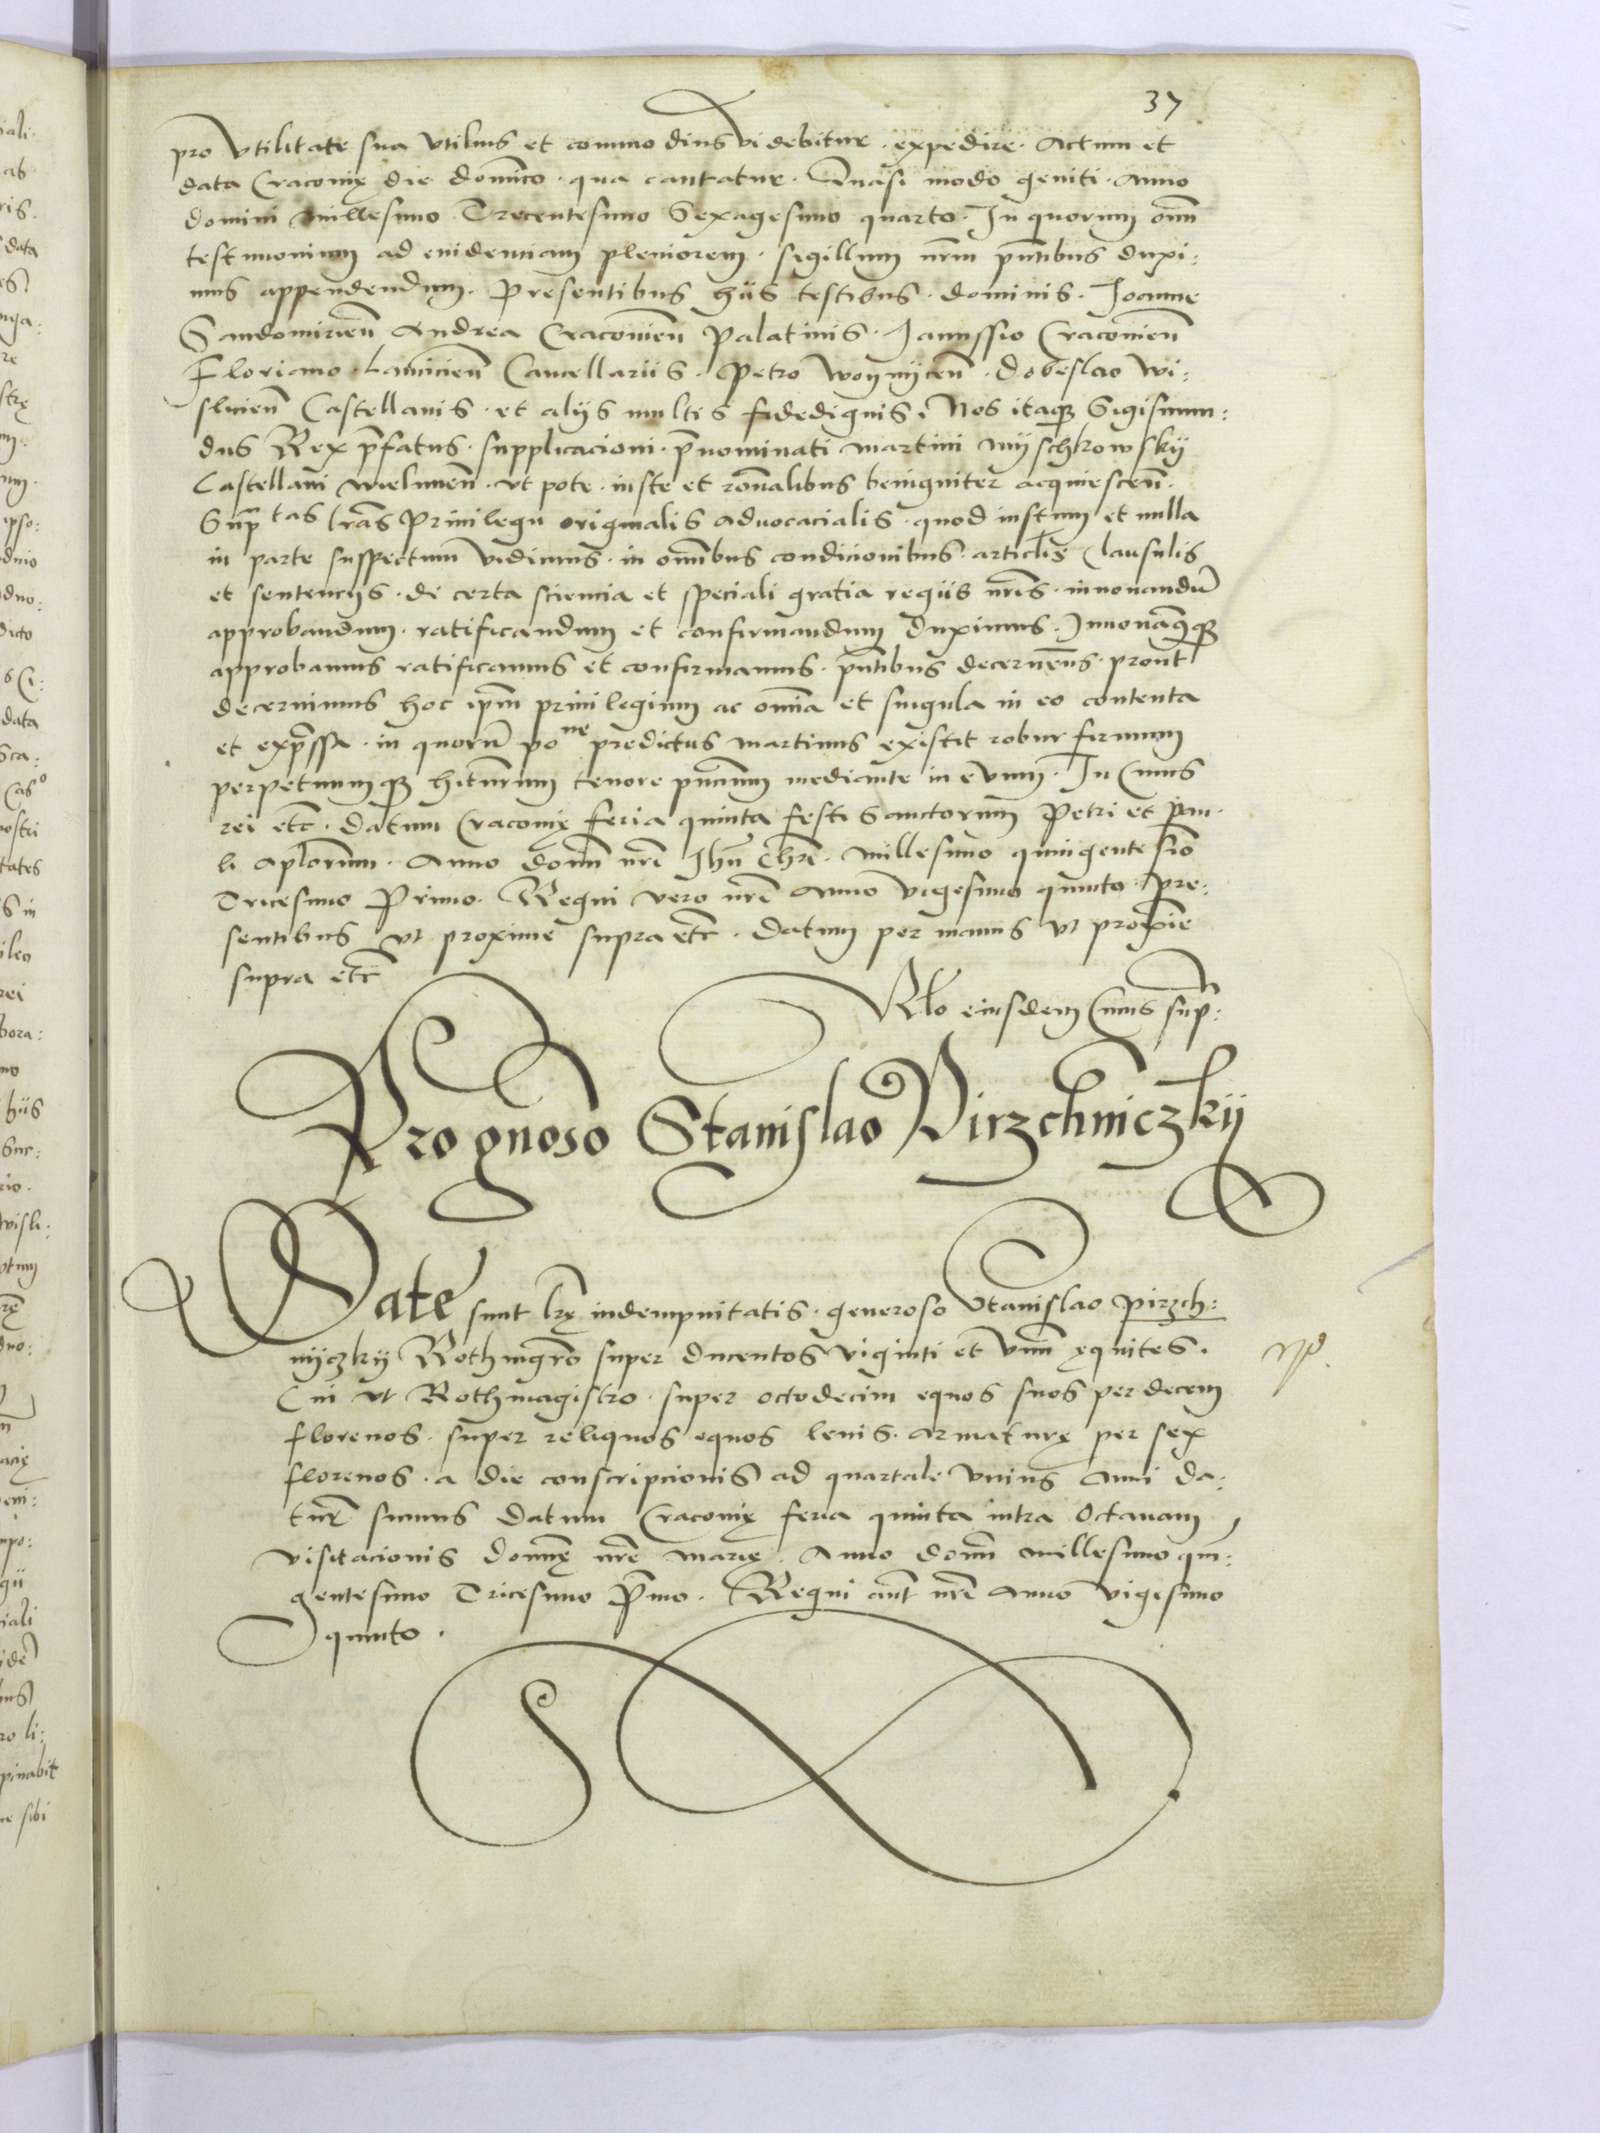 37
pro vtilitate sua vtilius et commodius videbitur. expedire. Actum et
data Cracovię die domĩco. qua cantatur. Quasi modo geniti. Anno
domini millesimo Trecentesimo Sexagesimo quarto. In quorum oñm
testimonium ad euidenciam pleniorem. sigillum nr̃m pñtibus duxi:
mus appendendum. Presentibus hijs testibus. dominis. Joanne
Sandomirieñ Andrea Cracovieñ Palatinis. Janussio Cracovieñ
Floriano. Lancicieñ Cancellarijs. Petro woynyceñ. dobeslao wi:
slicieñ Castellanis. et alijs multis fidedignis. Nos itaqꝫ Sigismun:
dus Rex p̃fatus. supplicacioni. p̃nominati martini myschkowsky
Castellani wieluneñ. vt pote. iuste et roñalibus benigniter acquiesceñ.
Sup̃tas lr̃as Priuilegij originalis aduocacialis. quod iustum et nulla
in parte suspectum vidimus. in oñibus condicionibus. articl̃is Clausulis
et sentencijs. de certa sciencia et speciali gratia regijs nr̃is. innouandũ
approbandum. ratificandum et confirmandum duximus. Innouam̃qꝫ
approbamus ratificamus et confirmamus. pñtibus decerneñs. prout
decernimus hoc ip̃m priuilegium ac om̃ia et singula in eo contenta
et exp̃ssa. in quorũ poñe predictus martinus existit robur firmum
perpetuumqꝫ hiturum tenore pñcium mediante in ęvum. In Cuius
rei etc̃. datum Cracovię feria quinta festi Sanctorum Petri et pau.
li apl̃orum. Anno domĩ nr̃i Jhũ Chrĩ. millesimo quingentesiõ
Tricesimo Primo. Regni vero nr̃i Anno vigesimo quinto. Pre:
sentibus vt proxime supra etc̃. datum per manus vt proxiẽ
supra etc̃
Rl̃o eiusdem Cuius sup̃:
Pro gnoso Stanislao Pirzchniczky
Date sunt lr̃ę indempnitatis. generoso Stanislao pirzch:
nyczky Rothmgr̃o super ducentos viginti et vnũ ęquites.
Cui vt Rothmagistro. super octodecim equos suos per decem
florenos. super reliquos equos leuis. armaturę per sex
florenos. a die conscripcionis ad quartale vnius Anni da:
turĩ sumus datum Cracovię feria quinta intra Octauam
visitacionis domĩę nr̃ę marię. Anno domĩ millesimo qui:
gentesimo Tricesimo P̃mo. Regni aũt nr̃i Anno vigesimo
quinto.